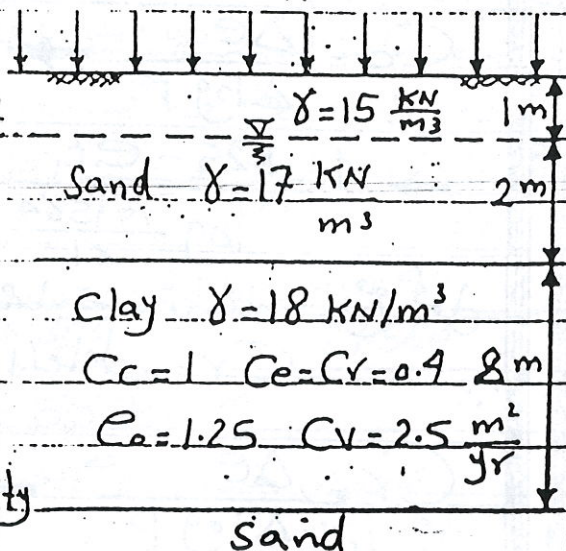 γ=15 KN/m3 1m
Sand γ=17 KN/m3 2m
Clay γ=18 KN/m3
Cc=1 Ce=Cr=0.4 8m
eo=1.25 Cv=2.5 m2/yr
ty
sand